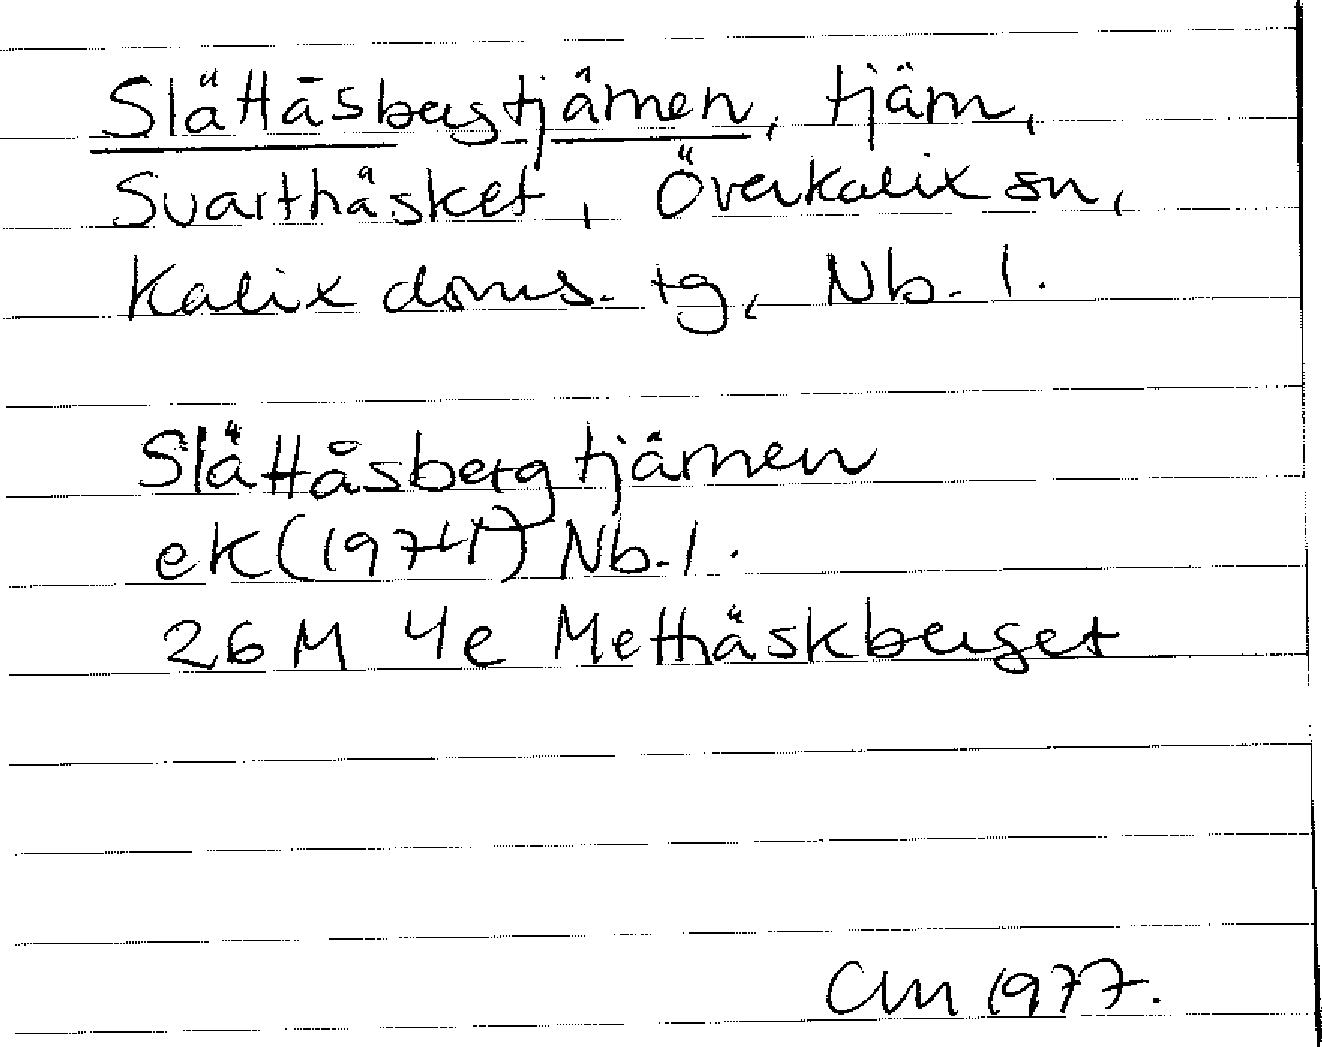 Slättåsbergtjärnen, tjärn,
Svarthåsket, Överkalix sn,
Kalix doms. tg, Nb. l.
Slättåsbergtjärnen
ek (1974) Nb. l.
26 M 4e Metthäskberget
CM 1977.